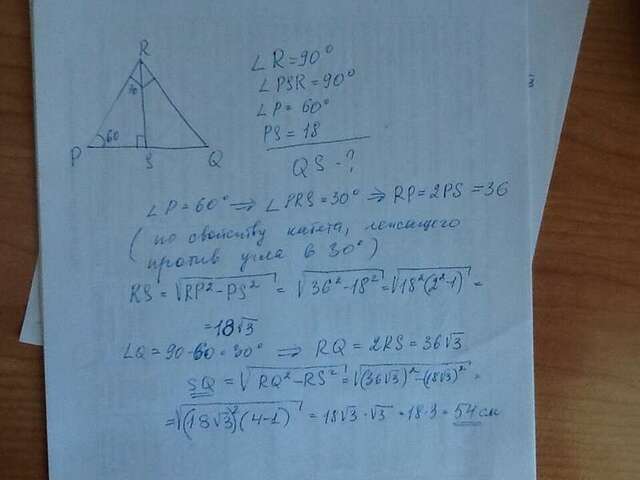 R
30
60
P S Q
∠R=90°
∠PSR=90°
∠P=60°
PS=18
QS-?
∠P=60° ⇒ ∠PRS=30° ⇒ RP=2PS=36
(по свойству катета, лежащего
против угла в 30°)
RS = √(RP²-PS²) = √(36²-18²) = √(18²(2²-1)) =
=18√3
∠Q=90-60=30° ⇒ RQ=2RS=36√3
SQ = √(RQ²-RS²) = √((36√3)²-(18√3)²) =
=√((18√3)²(4-1)) = 18√3·√3 = 18·3 = 54 см